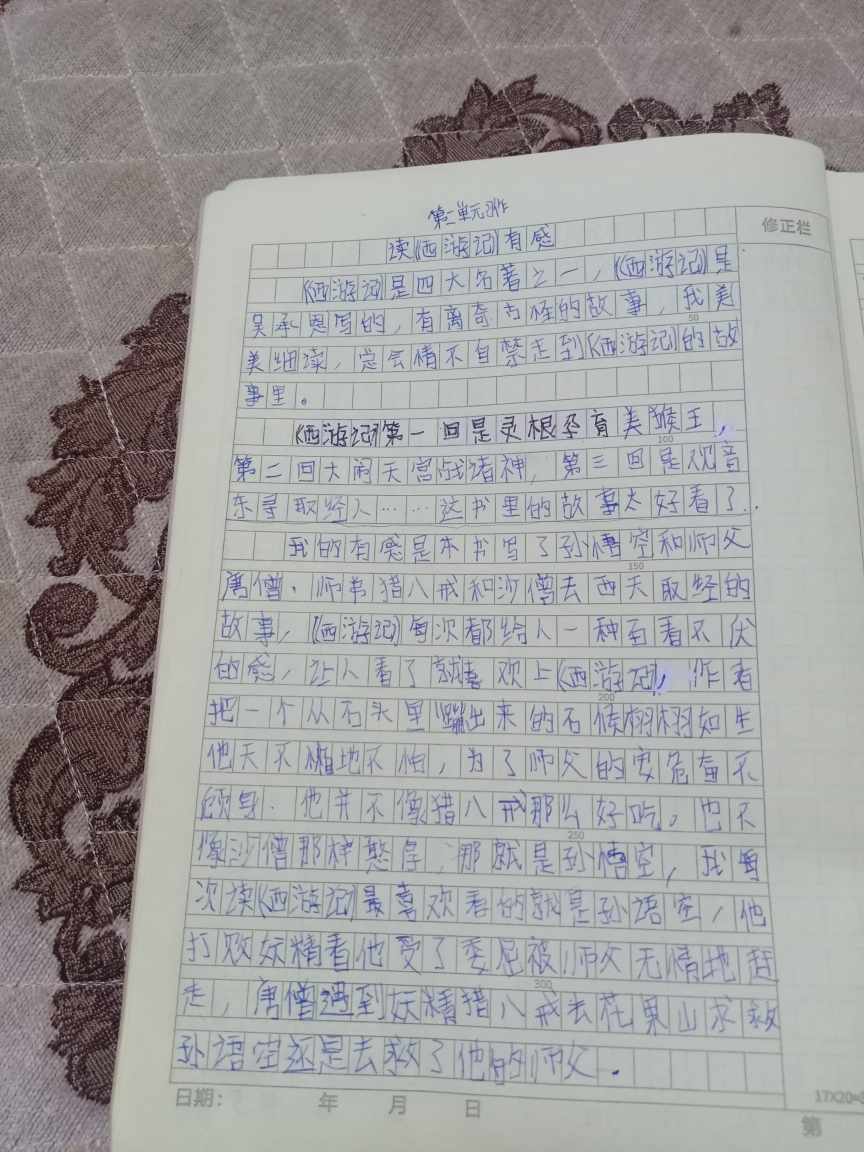 第二单元习作
修正栏
读《西游记》有感
《西游记》是四大名著之一，《西游记》是
吴承恩写的，有离奇古怪的故事，我美
50
美细读，总会情不自禁走到《西游记》的故
事里。
《西游记》第一回是灵根孕育美猴王，
100
第二回大闹天宫战诸神，第三回是观音
东寻取经人……这书里的故事太好看了..
我的有感是本书写了孙悟空和师父
150
唐僧.师弟猎八戒和沙僧去西天取经的
故事，《西游记》每次都给人一种百看不厌
的感，让人看了就喜欢上《西游记》，作者
200
把一个从石头里蹦出来的石候栩栩如生
他天不懒地不怕，为了师父的安危奋不
顾身.他并不像猎八戒那么好吃。也不
250
像沙僧那样憨厚，那就是孙悟空，我每
次读《西游记》最喜欢看的就是孙语空，他
打败妖精看他受了委屈被师父无情地赶
300
走，唐僧遇到妖精猎八戒去花果山求救
孙语空还是去救了他的师父.
日期： 年 月 日
17X20=
第